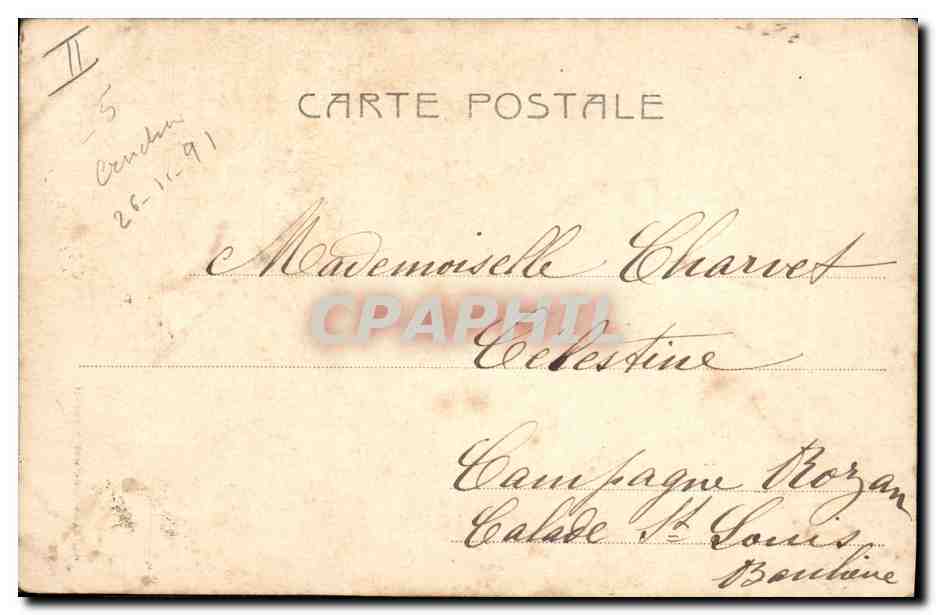 II
-5
26-11-91
CARTE POSTALE
Mademoiselle Charvet
CPAPHIL
Célestine
Campagne Rozan
Calade St Louis
Banlieue